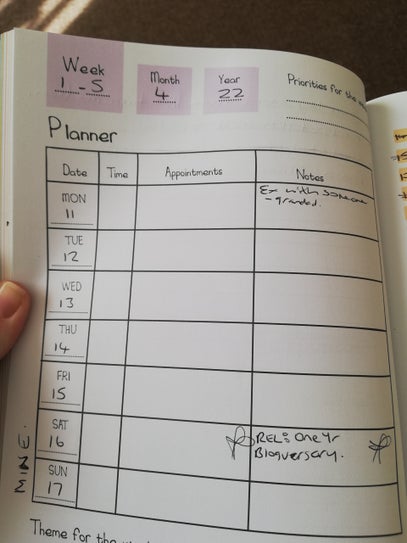 Week
1 - 5
Month
4
Year
22
Priorities for the
Planner
Date Time Appointments Notes
MON
11
Ex with someone
- grinded.
TUE
12
WED
13
THU
14
FRI
15
SAT
16
REL: One Yr
Blogversary.
SUN
17
MINE.
Theme for the